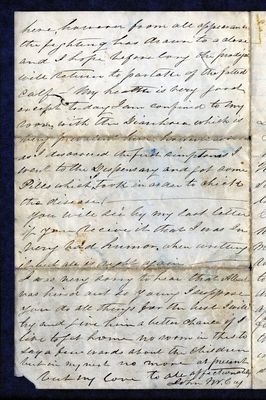 here, however from all appearance
the fighting has drawn to a close
and I hope before long the prodigal
will Return to partake of the fatted
calf. My health is very good
except today I am confined to my
room with the Diarrhoea which is
very prevalent here, however
as I discovered the first simptoms I
went to the Dispensary and got some
Pills which I took in order to check
the disease.
You will see by my last letter
if you receive it that I was In
very bad humor, when writing
again
I was very sorry to hear that
was so I suppose
you do all things for the best I will
try and give him a better chance if I
live to get home no more in this to
say a few words about the children
but in my next no more at present
but my Love to all affectionately
John W.